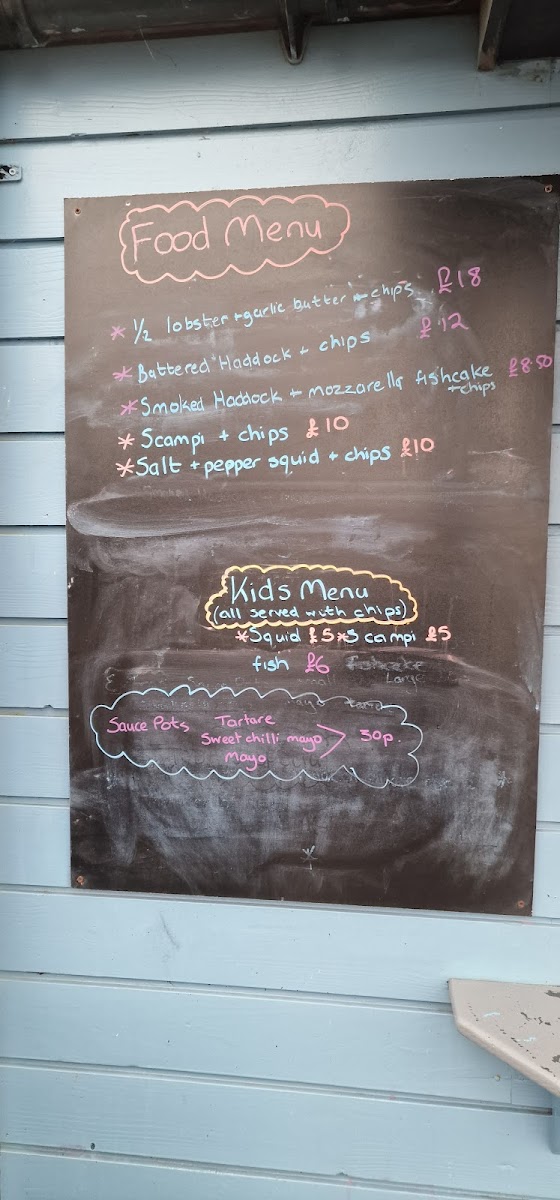 Food Menu
* 1/2 lobster + garlic butter + chips £18
* Battered Haddock + chips £12
* Smoked Haddock + mozzarella fishcake £8.50
+ chips
* Scampi + chips £10
* Salt + pepper squid + chips £10
Kids Menu
(all served with chips)
* Squid £5 * Scampi £5
fish £6 fishcake
Large
Sauce Pots Tartare
Sweet chilli mayo > 50p.
Mayo